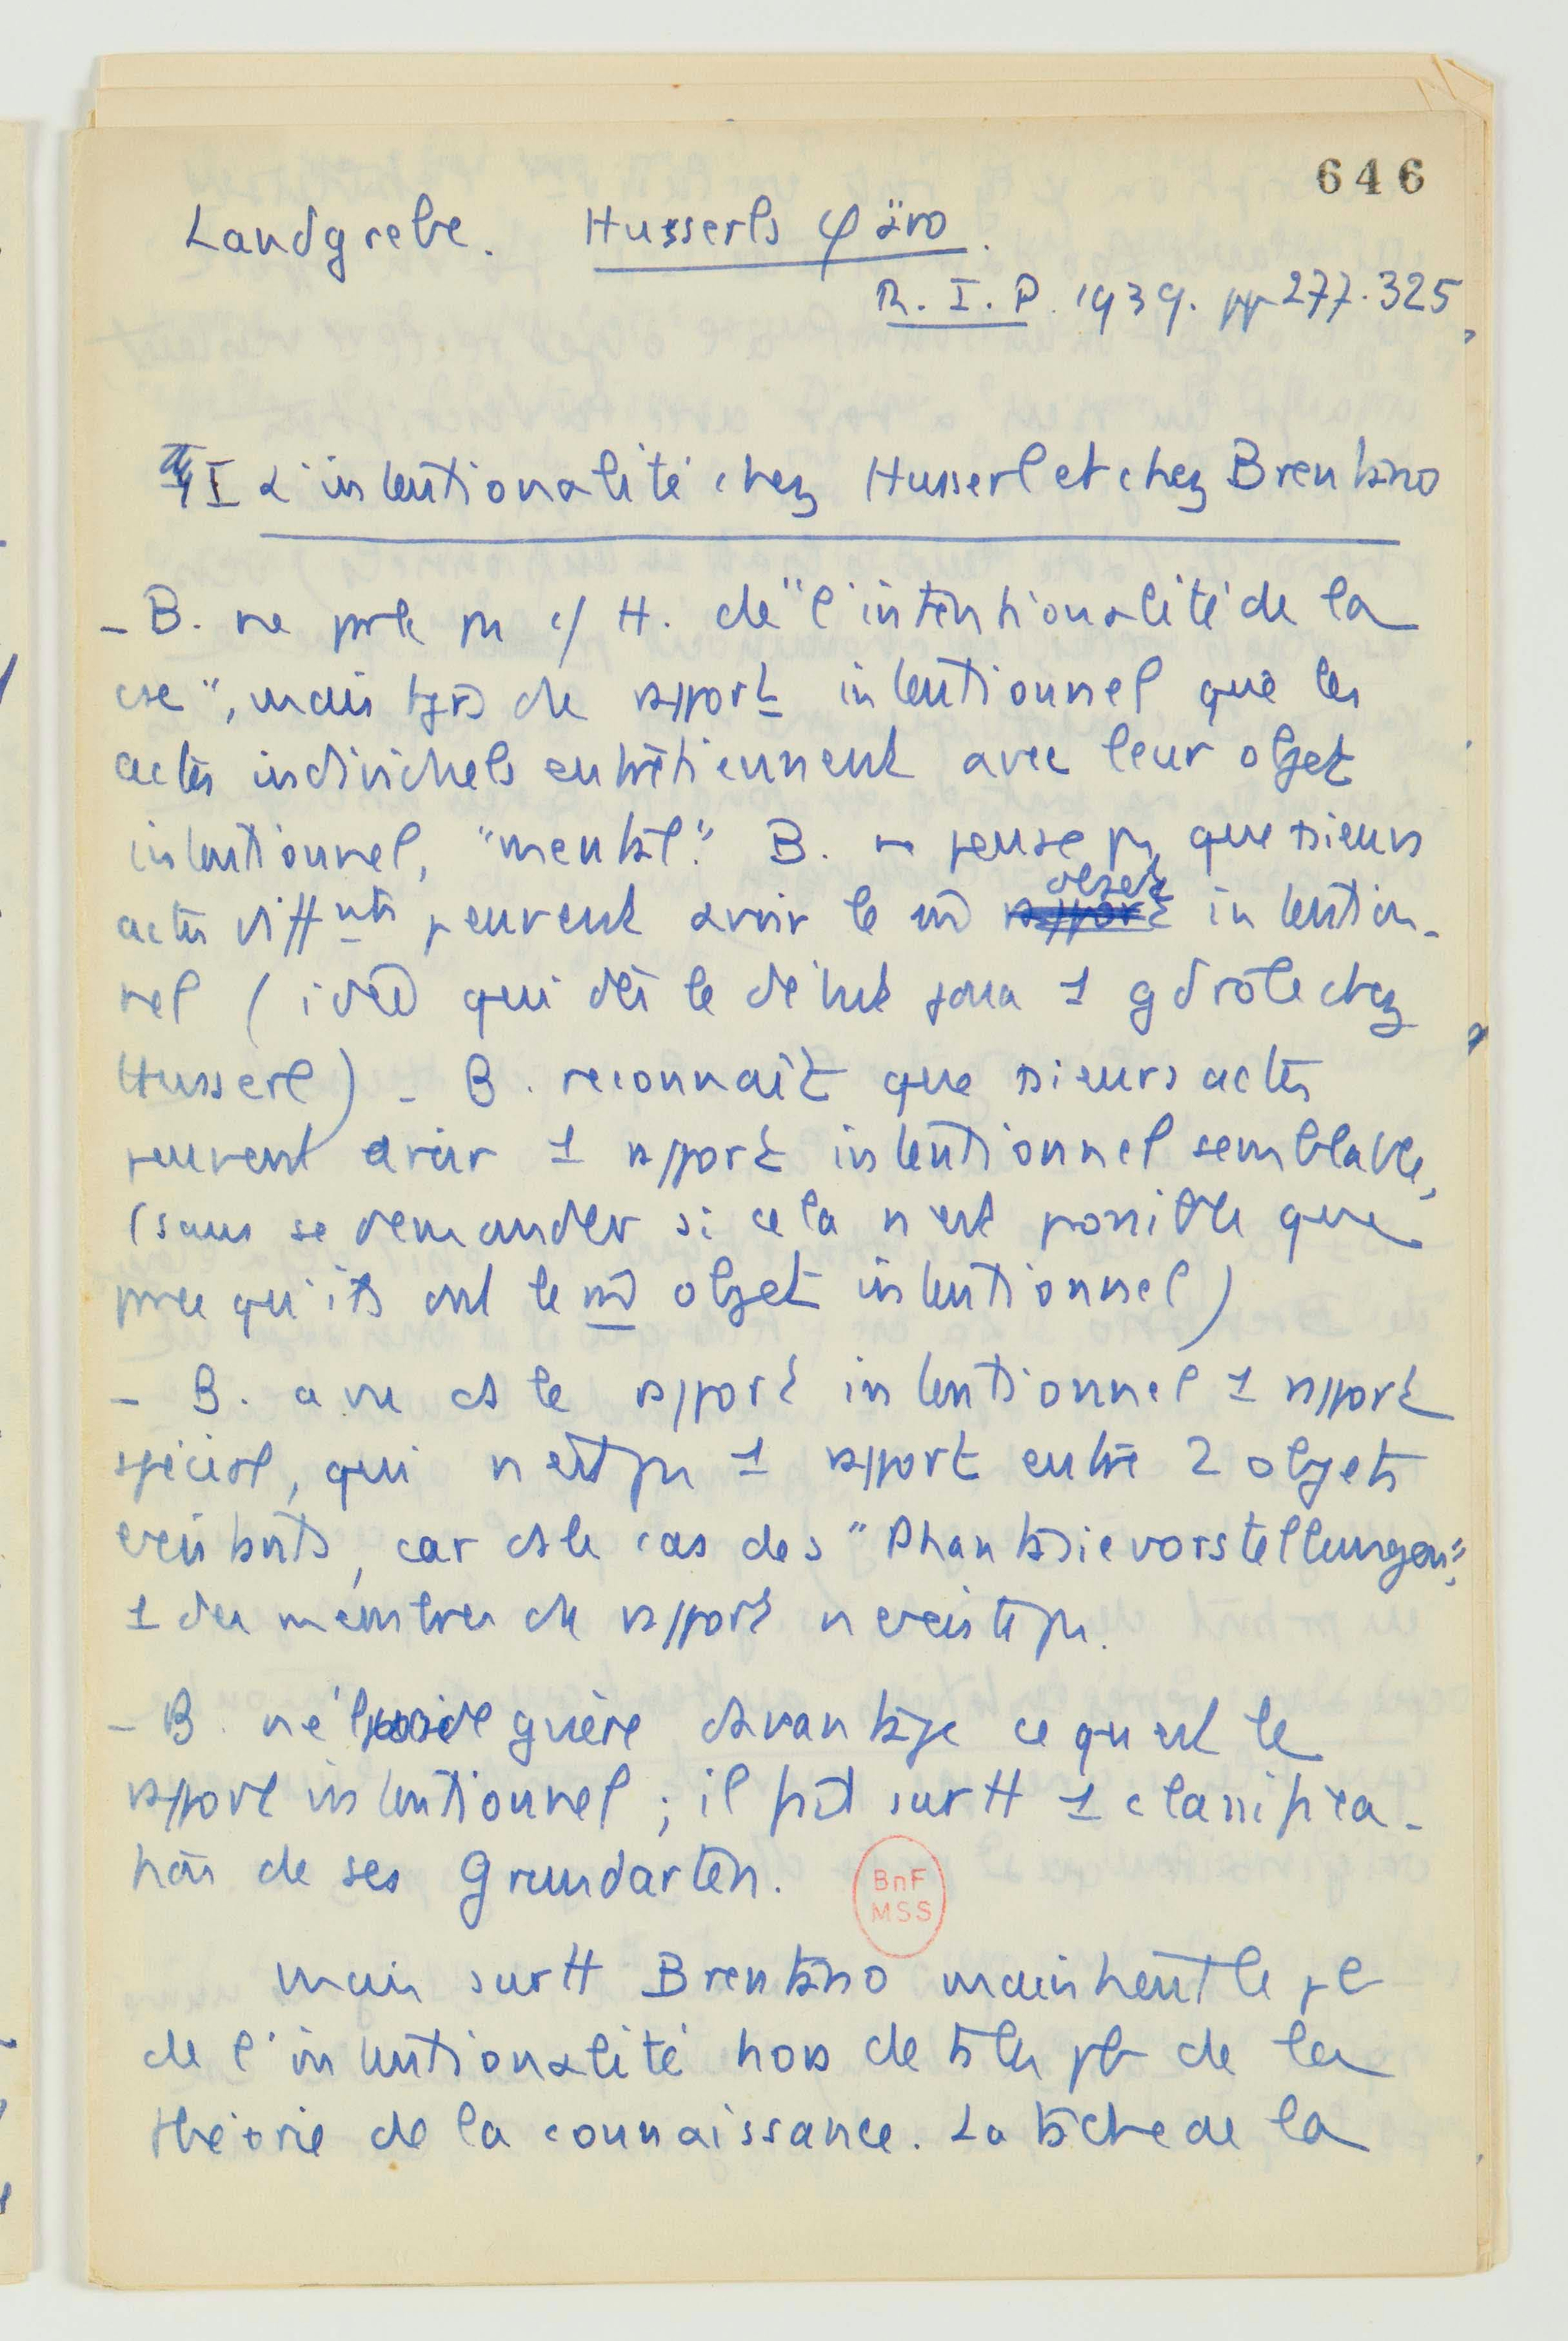 646
Landgrebe. Husserls φäno.
R. I. P. 1939. pp 277-325
I L'intentionalité chez Husserl et chez Brentano
- B. ne parle pas c/ H. de "l'intentionalité de la
cse", mais tjrs de rapport intentionnel que les
actes individuels entretiennent avec leur objet
intentionnel, "mental". B. ne pense pas que psieurs
actes difftnts peuvent avoir le m̂ objet intention-
nel (idée qui dès le début joua 1 gd rôle chez
Husserl) - B. reconnaît que psieurs actes
peuvent avoir 1 rapport intentionnel semblable,
(sans se demander si cela n'est possible que
parce qu'ils ont le m̂ objet intentionnel)
- B. a vu ds le rapport intentionnel 1 rapport
spécial, qui n'est pas 1 rapport entre 2 objets
existants, car ds le cas des "Phantasievorstellungen",
1 des membres du rapport n'existe pas.
- B. n'élucide guère davantage ce qu'est le
rapport intentionnel ; il fait surtt 1 classifica-
tion de ses Grundarten.
Mais surtt Brentano maintient le pb
de l'intentionalité hors de ts les pb de la
théorie de la connaissance. La tâche de la
BnF
MSS